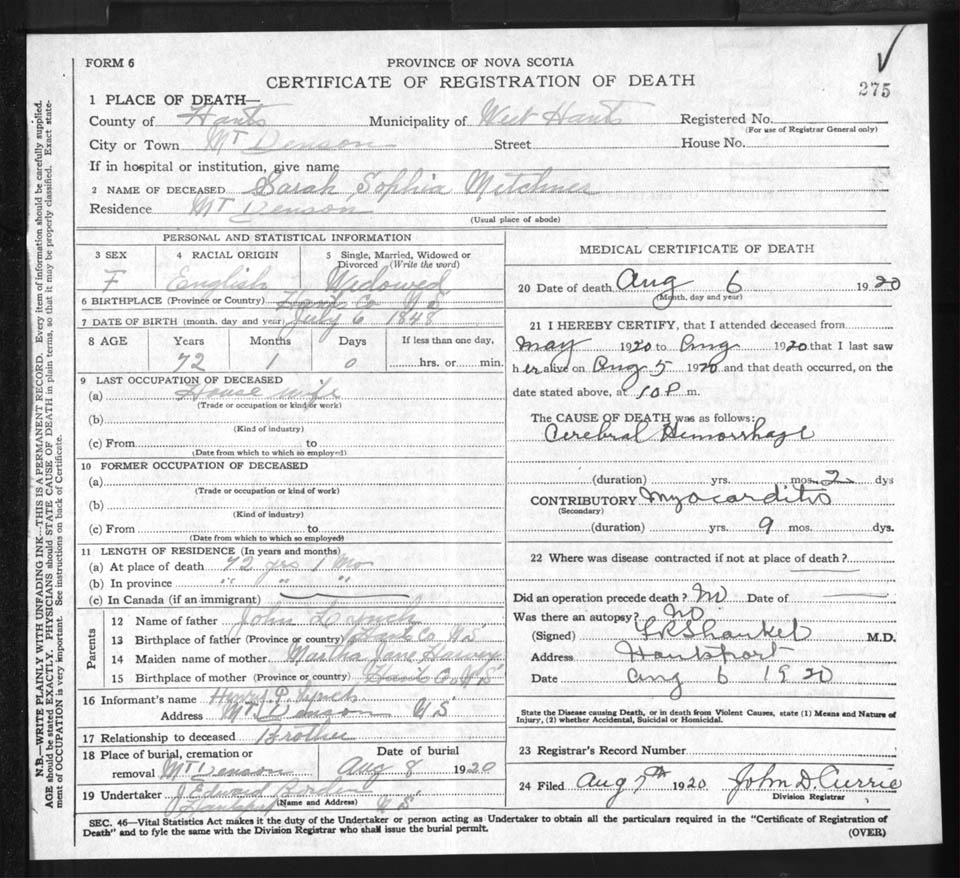 FORM 6
PROVINCE OF NOVA SCOTIA
CERTIFICATE OF REGISTRATION OF DEATH
275
1 PLACE OF DEATH—
County of Hants Municipality of West Hants Registered No.
(For use of Registrar General only)
City or Town Mt Denson Street House No.
If in hospital or institution, give name
2 NAME OF DECEASED Sarah Sophia Mitchner
Residence Mt Denson
(Usual place of abode)
PERSONAL AND STATISTICAL INFORMATION
3 SEX 4 RACIAL ORIGIN 5 Single, Married, Widowed or Divorced (Write the word)
F English Widowed
6 BIRTHPLACE (Province or Country) Hants Co N S
7 DATE OF BIRTH (month, day and year) July 6 1848
8 AGE Years Months Days If less than one day,
72 1 0 hrs. or min.
9 LAST OCCUPATION OF DECEASED
(a) House wife
(Trade or occupation or kind of work)
(b)
(Kind of industry)
(c) From to
(Date from which to which so employed)
10 FORMER OCCUPATION OF DECEASED
(a)
(Trade or occupation or kind of work)
(b)
(Kind of industry)
(c) From to
(Date from which to which so employed)
11 LENGTH OF RESIDENCE (In years and months)
(a) At place of death 72 yrs 1 Mo
(b) In province " " "
(c) In Canada (if an immigrant)
Parents
12 Name of father John Lynch
13 Birthplace of father (Province or country) Hants Co N S
14 Maiden name of mother Martha Jane Harvey
15 Birthplace of mother (Province or country) Hants Co N S
16 Informant's name Henry P. Lynch
Address Mt Denson N S
17 Relationship to deceased Brother
18 Place of burial, cremation or removal Mt Denson Date of burial Aug 8 1920
19 Undertaker J Edward Borden
(Name and Address) Hantsport N S
MEDICAL CERTIFICATE OF DEATH
20 Date of death Aug 6 1920
(Month, day and year)
21 I HEREBY CERTIFY, that I attended deceased from
May 1920 to Aug 1920 that I last saw
h er alive on Aug 5 1920 and that death occurred, on the
date stated above, at 10 P m.
The CAUSE OF DEATH was as follows:
Cerebral Hemorrhage
(duration) yrs. mos. 2 dys
CONTRIBUTORY Myocarditis
(Secondary)
(duration) yrs. 9 mos. dys.
22 Where was disease contracted if not at place of death?
Did an operation precede death? No Date of
Was there an autopsy? No
(Signed) Shankel M.D.
Address Hantsport
Date Aug 6 1920
State the Disease causing Death, or in death from Violent Causes, state (1) Means and Nature of
Injury, (2) whether Accidental, Suicidal or Homicidal.
23 Registrar's Record Number
24 Filed Aug 7th 1920 John D. Currie
Division Registrar
SEC. 46—Vital Statistics Act makes it the duty of the Undertaker or person acting as Undertaker to obtain all the particulars required in the "Certificate of Registration of
Death" and to fyle the same with the Division Registrar who shall issue the burial permit.
(OVER)
N.B.—WRITE PLAINLY WITH UNFADING INK—THIS IS A PERMANENT RECORD. Every item of information should be carefully supplied.
AGE should be stated EXACTLY. PHYSICIANS should STATE CAUSE OF DEATH in plain terms, so that it may be properly classified. Exact state-
ment of OCCUPATION is very important. See instructions on back of Certificate.